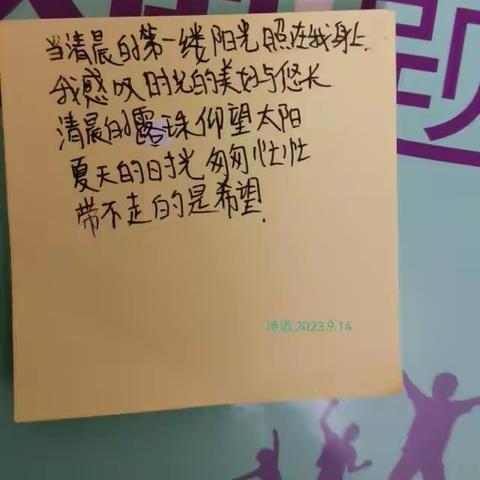 当清晨的第一缕阳光照在我身上.
我感叹时光的美好与悠长
清晨的露珠仰望太阳
夏天的时光匆匆忙忙
带不走的是希望.
2023.9.14